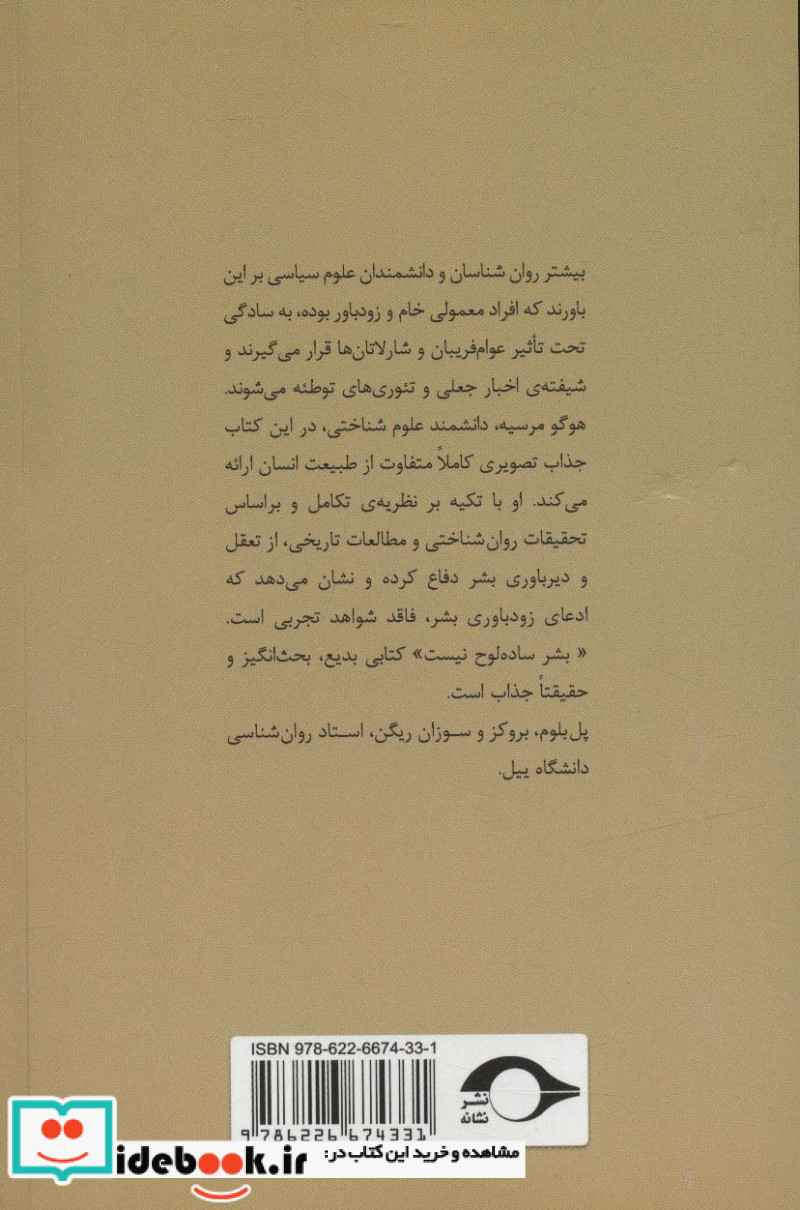 بیشتر روان شناسان و دانشمندان علوم سیاسی بر این
باورند که افراد معمولی خام و زودباور بوده، به سادگی
تحت تأثیر عوام‌فریبان و شارلاتان‌ها قرار می‌گیرند و
شیفته‌ی اخبار جعلی و تئوری‌های توطئه می‌شوند.
هوگو مرسیه، دانشمند علوم شناختی، در این کتاب
جذاب تصویری کاملاً متفاوت از طبیعت انسان ارائه
می‌کند. او با تکیه بر نظریه‌ی تکامل و براساس
تحقیقات روان‌شناختی و مطالعات تاریخی، از تعقل
و دیرباوری بشر دفاع کرده و نشان می‌دهد که
ادعای زودباوری بشر، فاقد شواهد تجربی است.
« بشر ساده‌لوح نیست» کتابی بدیع، بحث‌انگیز و
حقیقتاً جذاب است.
پل‌بلوم، بروکز و سوزان ریگن، استاد روان‌شناسی
دانشگاه ییل.
ISBN 978-622-6674-33-1
9 786226 674331
نشر
نشانه
مشاهده و خرید این کتاب در:
idebook.ir